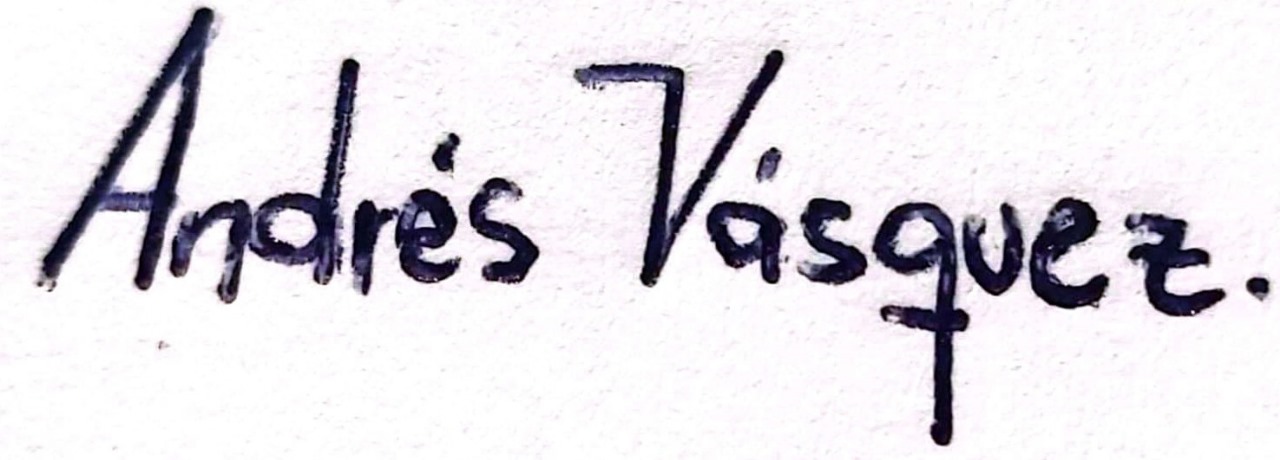 Andrés Vásquez.